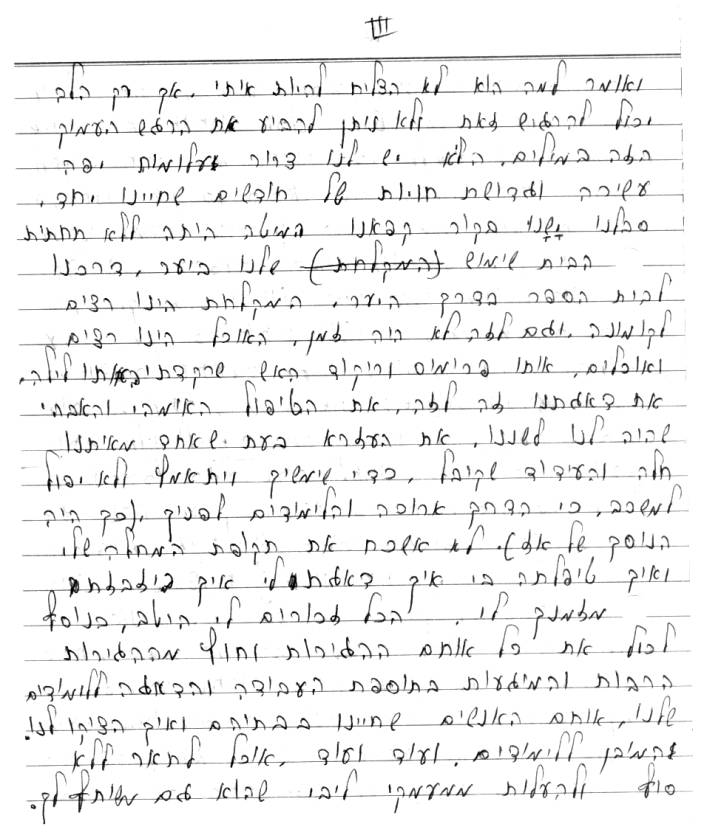 III
ואומר למה הוא לא הצליח להיות איתי. אך רק הלב
יכול להרגיש זאת ולא ניתן להביע את הרגש העמוק
הזה במילים. הלא יש לנו דרור עלומות יפה
עשירה וגדושת חוויות של חודשים שחיינו יחד.
סבלנו ישנו מקור קפאנו המיטה היתה ללא תחתית
הבית שימוש (המקלחת) שלנו ביער, דרכנו
לבית הספר בדרך היער. המקלחת היינו רצים
לקומונה וגם לזה לא היה זמן, האוכל היינו רצים
ואוכלים, אותו פרימוס וריקוד האש שרקדתי באותו לילה,
את דאגתנו זה לזה, את הטיפול האימהי והאבהי
שהיה לנו לשנינו, את העזרא בעת שאחד מאיתנו
חלה והעידוד שקיבל, כדי שימשיך ויתאמץ ולא יפול
למשכב, כי הדרך ארוכה והלימודים לפניך (כך היה
הניסך של אז). לא אשכח את תקופת המחלה שלי
ואיך טיפלתה בי איך דאגת לי איך ביזבזת
מזמנך לי. הכל זכורים לי היטב, בניסף
לכול את כל אותם ההגירות וחוץ מההגירות
הרבות והמיגעות בתוספת העבודה והדאגה ללימודים
שלנו, אותם האנשים שחיינו בבתיהם ואיך הציקו לנו.
וכמובן ללימודים. ועוד ועוד. אוכל לתאר ללא
סוף ולהעלות ממעמקי ליבי שהוא גם משותף לך.